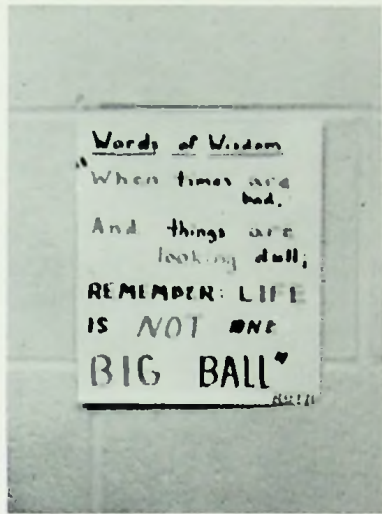 Words of Wisdom
When times are
bad,
And things are
looking dull;
REMEMBER: LIFE
IS NOT ONE
BIG BALL